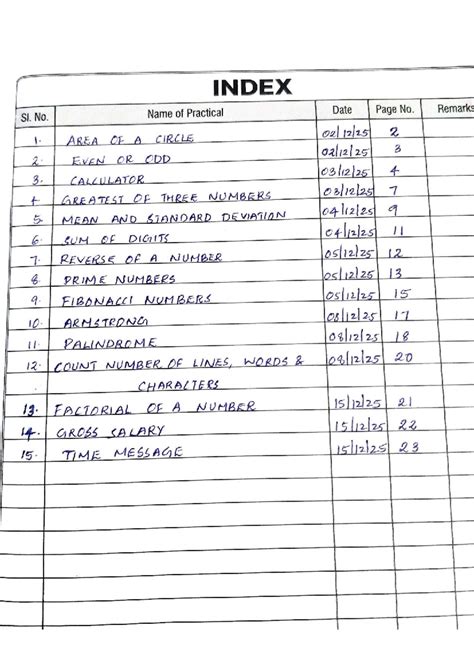 INDEX
Sl. No. Name of Practical Date Page No. Remarks
1. AREA OF A CIRCLE 02/12/25 2
2. EVEN OR ODD 02/12/25 3
3. CALCULATOR 03/12/25 4
4 GREATEST OF THREE NUMBERS 03/12/25 7
5. MEAN AND STANDARD DEVIATION 04/12/25 9
6. SUM OF DIGITS 04/12/25 11
7. REVERSE OF A NUMBER 05/12/25 12
8. PRIME NUMBERS 05/12/25 13
9. FIBONACCI NUMBERS 05/12/25 15
10. ARMSTRONG 08/12/25 17
11. PALINDROME 08/12/25 18
12. COUNT NUMBER OF LINES, WORDS & 08/12/25 20
CHARACTERS
13. FACTORIAL OF A NUMBER 15/12/25 21
14. GROSS SALARY 15/12/25 22
15. TIME MESSAGE 15/12/25 23